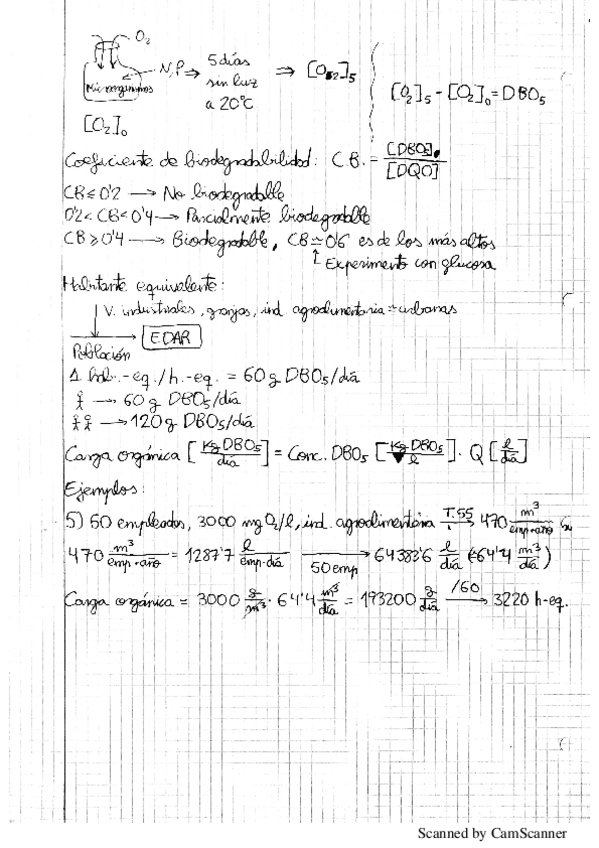 O₂
Microorganismos
N, P ⇒ 5 días sin luz a 20°C ⇒ [O₂]₅
[O₂]₅ - [O₂]₀ = DBO₅
[O₂]₀
Coeficiente de biodegradabilidad: C.B. = [DBO₅] / [DQO]
CB ≤ 0'2 → No biodegradable
0'2 < CB < 0'4 → Parcialmente biodegradable
CB ≥ 0'4 → Biodegradable, CB ≃ 0'6 es de los más altos
↑ Experimento con glucosa
Habitante equivalente:
V. industriales, granjas, ind. agrodimentaria urbanas
E.D.A.R
Población
1 hab.-eq./h.-eq. = 60 g DBO₅/día
→ 60 g DBO₅/día
→ 120 g DBO₅/día
Carga orgánica [Kg DBO₅/día] = Conc. DBO₅ [Kg DBO₅/l] · Q [l/día]
Ejemplos:
5) 50 empleados, 3000 mg O₂/l, ind. agrodimentária T.55 → 470 m³/emp·año
470 m³/emp·año = 1287'7 l/emp·día 50 emp → 64383'6 l/día (64'4 m³/día)
Carga orgánica = 3000 g/m³ · 64'4 m³/día = 193200 g/día /60 → 3220 h-eq.
Scanned by CamScanner